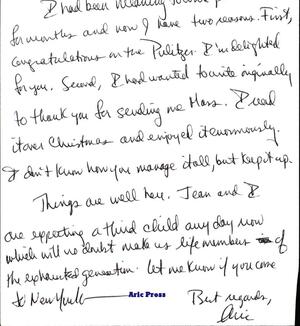 I had been meaning to write
for months and now I have two reasons. First,
congratulations on the Pulitzer. I'm delighted
for you. Second, I had wanted to write originally
to thank you for sending me Mass. I read
it over Christmas and enjoyed it enormously.
I don't know how you manage it all, but keep it up.
Things are well here. Jean and I
are expecting a third child any day now
which will no doubt make us life members of
the exhausted generation. Let me know if you come
to New York
Aric Press
Best regards,
Aric